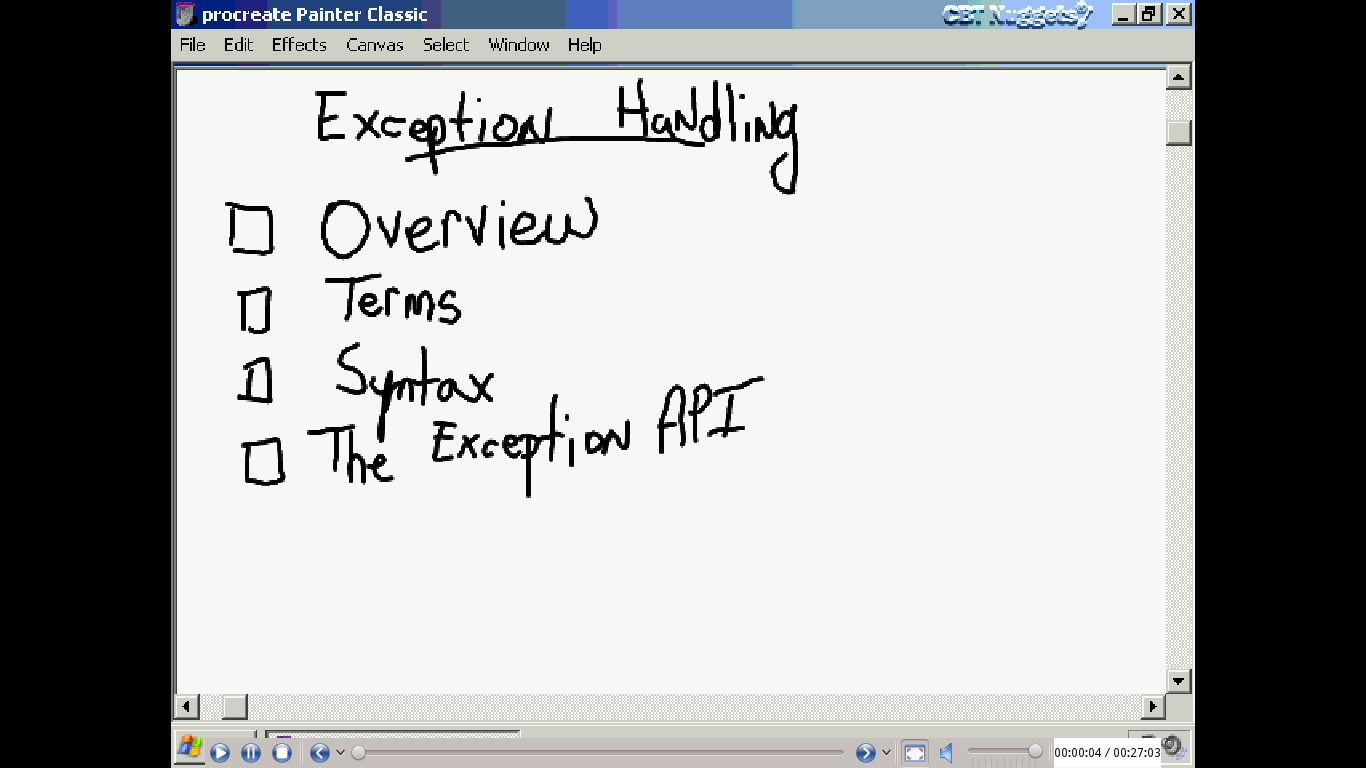 procreate Painter Classic
CBT Nuggets
File Edit Effects Canvas Select Window Help
Exception Handling
Overview
Terms
Syntax
The Exception API
00:00:04 / 00:27:03